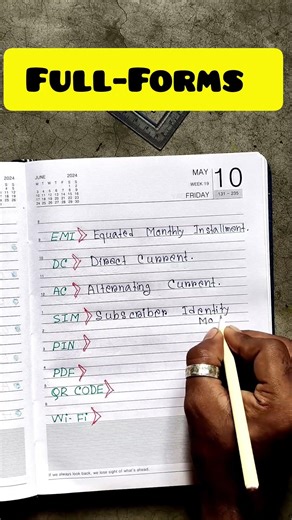 FULL-FORMS
JUNE 2024
2024
MAY
WEEK 19
FRIDAY
10
131 - 235
EMI > Equated Monthly Installment.
DC > Direct Current.
AC > Alternating Current.
SIM > Subscriber Identity
Mo
PIN >
PDF >
QR CODE >
Wi-Fi >
If we always look back, we lose sight of what's ahead.